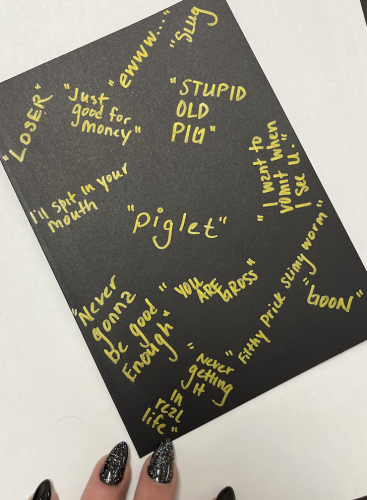 ewww..."
"Slug
"LOSER"
"Just
good for
money"
"STUPID
OLD
PIG"
I'll spit in your
mouth
"I want to
vomit when
I see u.
"piglet"
"Never
gonna
be good
Enough"
"YOU
ARE
GROSS"
Filthy Prick slimy worm"
"GOON"
"Never
getting
it
in
real
life"